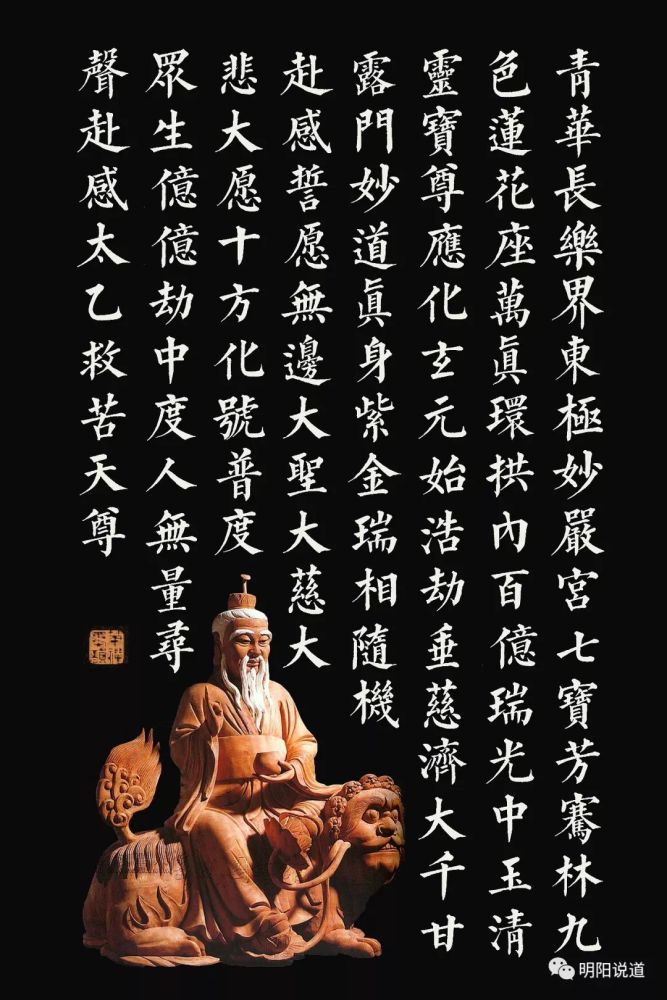 青華長樂界東極妙嚴宮七寶芳騫林九
色蓮花座萬眞環拱內百億瑞光中玉清
靈寶尊應化玄元始浩劫垂慈濟大千甘
露門妙道眞身紫金瑞相隨機
赴感誓愿無邊大聖大慈大
悲大愿十方化號普度
眾生億億劫中度人無量尋
聲赴感太乙救苦天尊
明阳说道